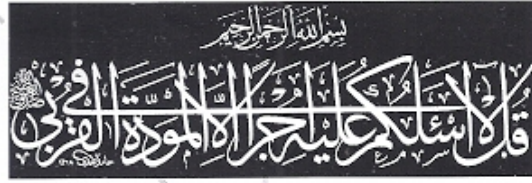 بسم الله الرحمن الرحيم
قل لا اسئلكم عليه اجرا الا المودة في القربى